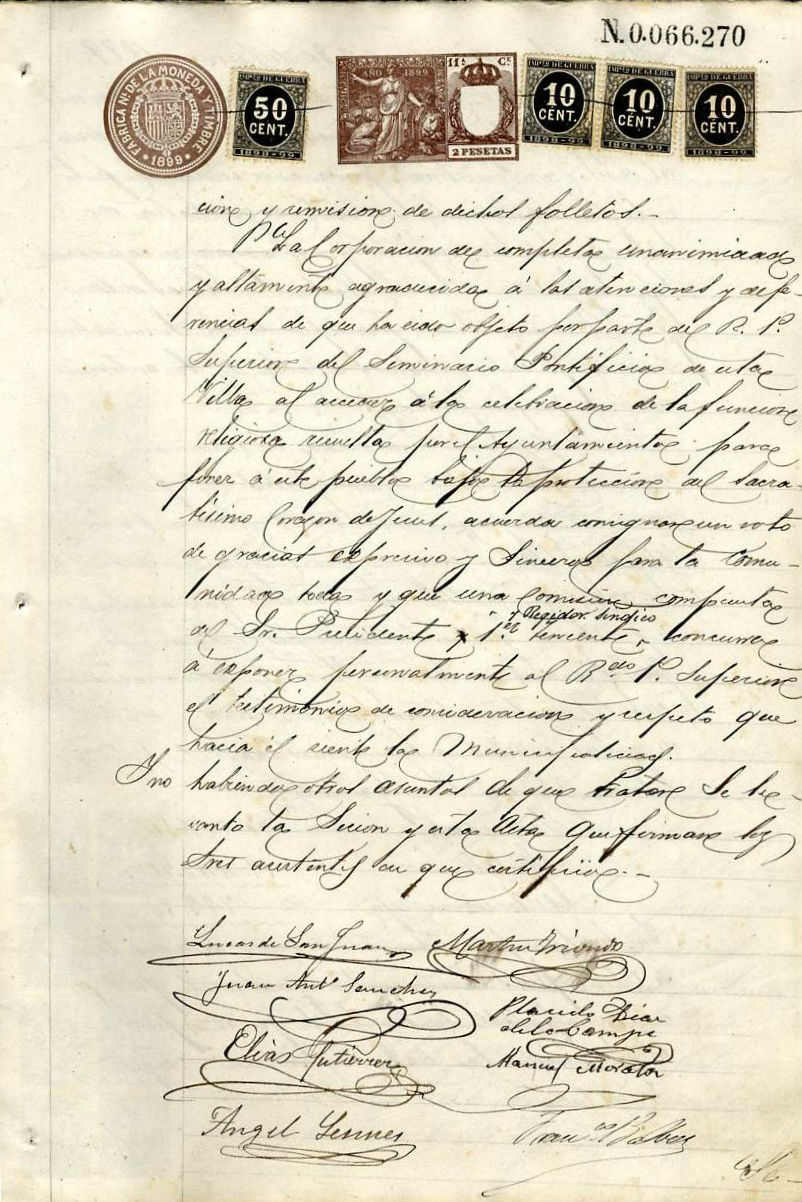 N.0.066.270
FABRICA Nal DE LA MONEDA Y TIMBRE
1899
IMPTO DE GUERRA
50
CENT.
1898-99
AÑO 1899
11ª Cª
2 PESETAS
IMPTO DE GUERRA
10
CENT.
1898-99
IMPTO DE GUERRA
10
CENT.
1898-99
IMPTO DE GUERRA
10
CENT.
1898-99
cion y remision de dichos folletos.—
La Corporacion de completa unanimidad
y altamente agradecida á las atenciones y defe-
rencias de que ha sido objeto por parte del R. P.
Superior del Seminario Pontificio de esta
Villa al acceder á la celebracion de la funcion
religiosa resuelta por el Ayuntamiento para
poner á este pueblo bajo la proteccion del Sacra-
tisimo Corazon de Jesus, acuerda consignar un voto
de gracias expresivo y sincero para la comu-
nidad toda y que una Comision compuesta
y Regidor Sindico
del Sr. Presidente y 1er teniente concurra
á exponer personalmente al Rdo P. Superior
el testimonio de consideracion y respeto que
hacia él siente la Municipalidad.
Y no habiendo otros asuntos de que tratar se le-
vanta la Sesion y esta Acta que firman los
Sres asistentes de que certifico.—
Lucas de San Juan Martin Iriondo
Juan Antº Sanchez
Placido Diaz
de la Campa
Elias Gutierrez
Manuel Morator
Angel
Franco